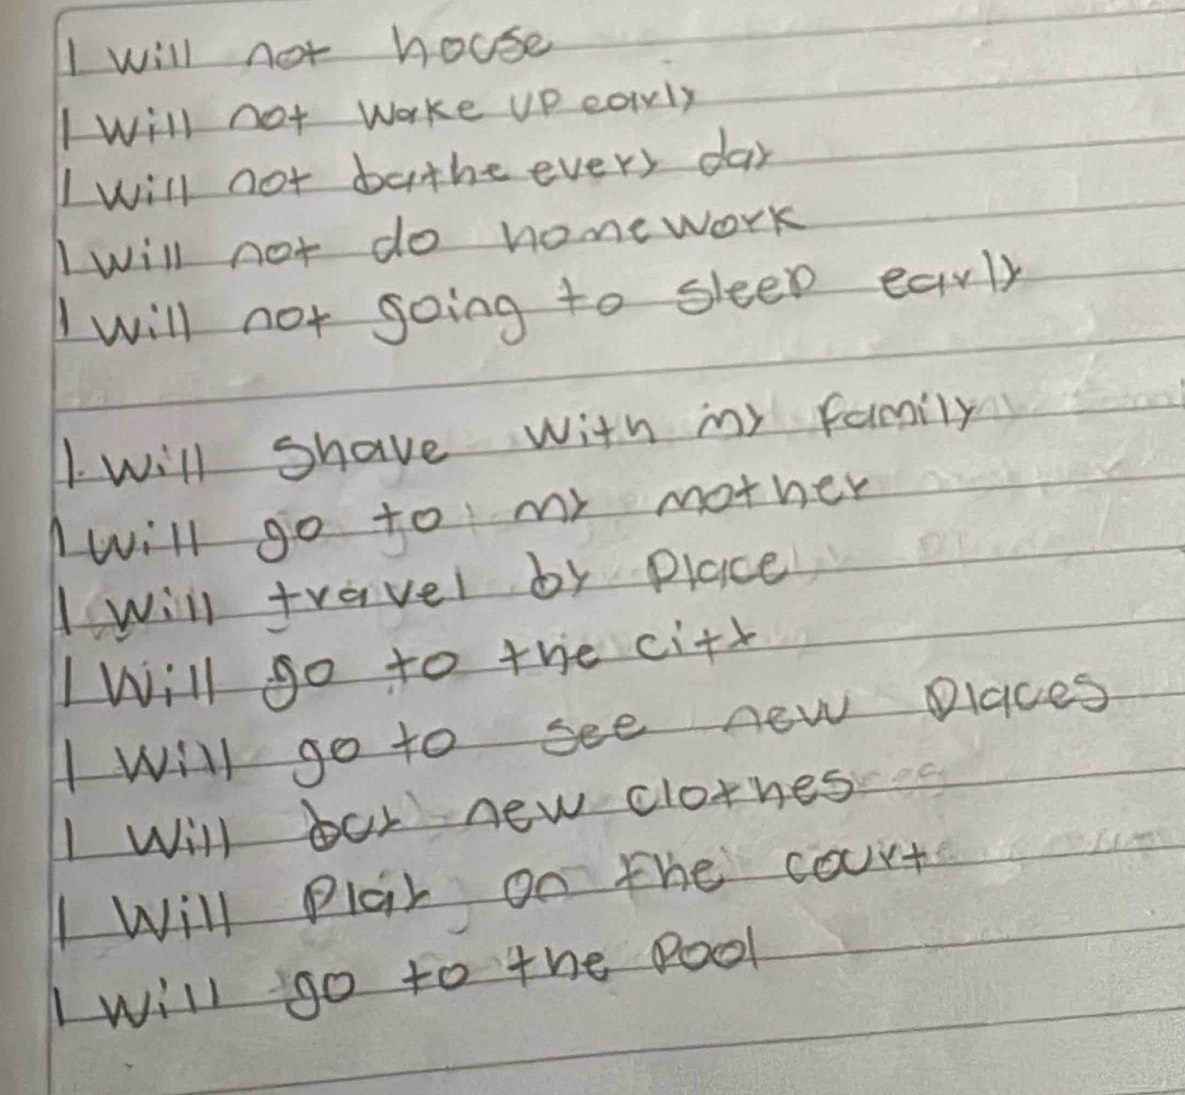 I will not house
I will not wake up early
I will not bathe every day
I will not do homework
I will not going to sleep early
I will shave with my family
I will go to my mother
I will travel by place
I will go to the city
I will go to see new places
I will buy new clothes
I will play on the court
I will go to the pool